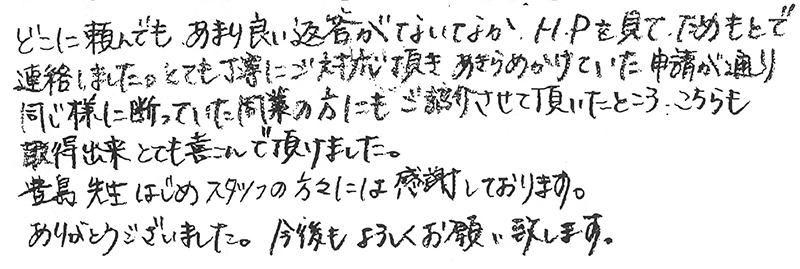 どこに頼んでも、あまり良い返答がないなか、H.Pを見て、だめもとで
連絡しました。とても丁寧にご対応頂き、あきらめかけていた申請が通り
同じ様に断っていた同業の方にもご紹介させて頂いたところ、こちらも
取得出来とても喜こんで頂けました。
豊島先生はじめスタッフの方々には感謝しております。
ありがとうございました。今後もよろしくお願い致します。